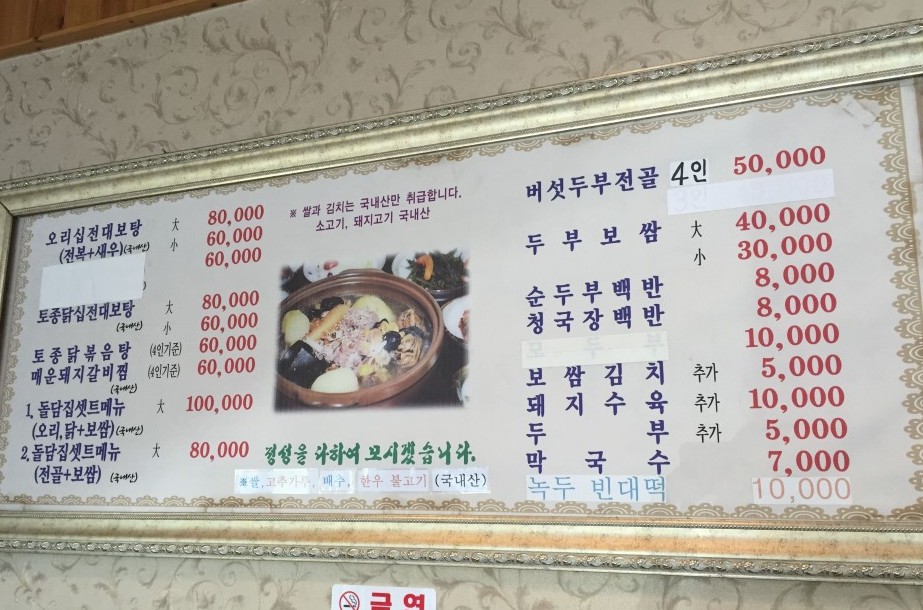 오리십전대보탕 大 80,000
(전복+새우)(국내산) 小 60,000
60,000
토종닭십전대보탕 大 80,000
(국내산) 小 60,000
토종닭볶음탕 (4인기준) 60,000
매운돼지갈비찜 (4인기준) 60,000
(국내산)
1, 돌담집셋트메뉴 大 100,000
(오리,닭+보쌈)(국내산)
2, 돌담집셋트메뉴 大 80,000
(전골+보쌈) (국내산)
※ 쌀과 김치는 국내산만 취급합니다.
소고기, 돼지고기 국내산
정성을 다하여 모시겠습니다.
※쌀,고추가루, 배추, 한우 불고기 (국내산)
버섯두부전골 4인 50,000
두부보쌈 大 40,000
小 30,000
순두부백반 8,000
청국장백반 8,000
모두부 10,000
보쌈김치 추가 5,000
돼지수육 추가 10,000
두부 추가 5,000
막국수 7,000
녹두 빈대떡 10,000
금연